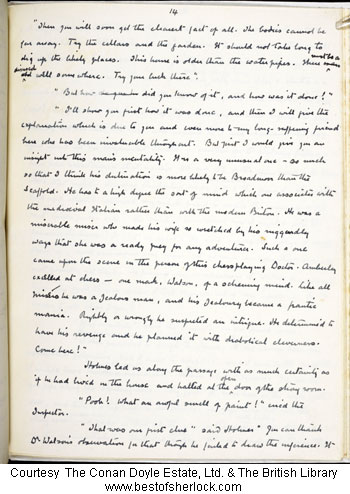 14
"Then you will soon get the clearest fact of all. The bodies cannot be
far away. Try the cellars and the garden. It should not take long to
dig up the likely places. This house is older than the waterpipes. There must be a
disused well somewhere. Try your luck there".
"But how did you know of it, and how was it done?"
"I'll show you first how it was done, and then I will give the
explanation which is due to you and even more to my long-suffering friend
here who has been invaluable throughout. But first I would give you an
insight into this man's mentality. It is a very unusual one - so much
so that I think his destination is more likely to be Broadmoor than the
Scaffold. He has to a high degree the sort of mind which one associates with
the mediaeval Italian rather than with the modern Briton. He was a
miserable miser who made his wife so wretched by his niggardly
ways that she was a ready prey for any adventurer. Such a one
came upon the scene in the person of this chessplaying Doctor. Amberley
excelled at chess - one mark, Watson, of a scheming mind. Like all
misers he was a jealous man, and his jealousy became a frantic
mania. Rightly or wrongly he suspected an intrigue. He determined to
have his revenge and he planned it with diabolical cleverness.
Come here!"
Holmes led us along the passage with as much certainty as
if he had lived in the house and halted at the open door of the strong room.
"Pooh! What an awful smell of paint!" cried the
Inspector.
"That was our first clue" said Holmes "You can thank
Dr Watson's observation for that though he failed to draw the inference. It
Courtesy The Conan Doyle Estate, Ltd. & The British Library
www.bestofsherlock.com